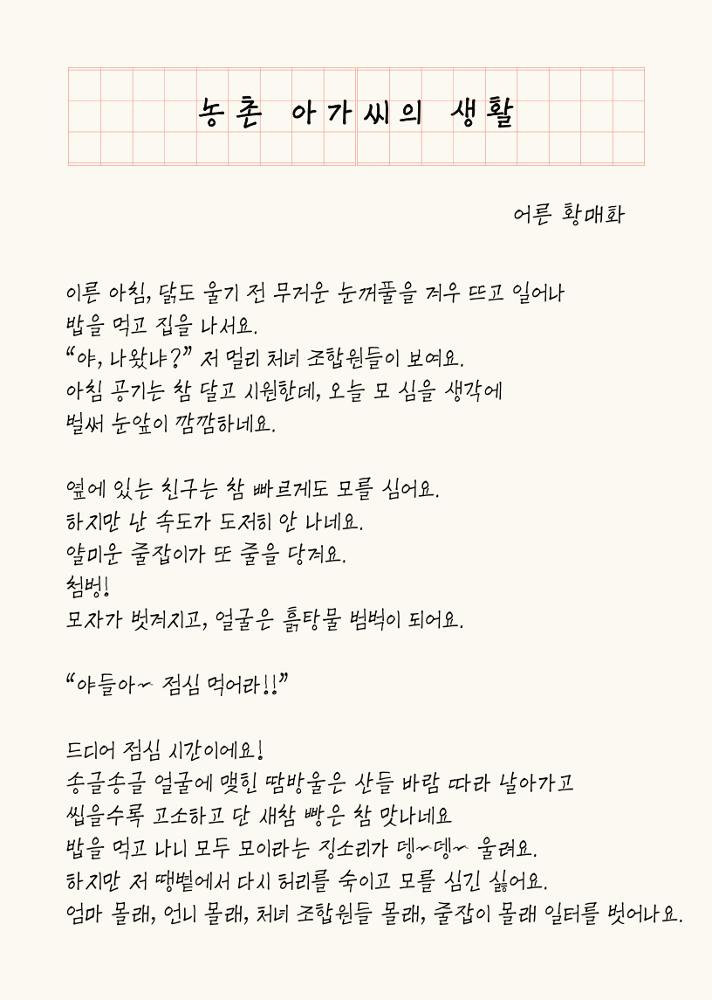 농촌 아가씨의 생활
어른 황매화
이른 아침, 닭도 울기 전 무거운 눈꺼풀을 겨우 뜨고 일어나
밥을 먹고 집을 나서요.
“야, 나왔냐?” 저 멀리 처녀 조합원들이 보여요.
아침 공기는 참 달고 시원한데, 오늘 모 심을 생각에
벌써 눈앞이 깜깜하네요.
옆에 있는 친구는 참 빠르게도 모를 심어요.
하지만 난 속도가 도저히 안 나네요.
얄미운 줄잡이가 또 줄을 당겨요.
첨벙!
모자가 벗겨지고, 얼굴은 흙탕물 범벅이 되어요.
“야들아~ 점심 먹어라!!”
드디어 점심 시간이에요!
송글송글 얼굴에 맺힌 땀방울은 산들 바람 따라 날아가고
씹을수록 고소하고 단 새참 빵은 참 맛나네요
밥을 먹고 나니 모두 모이라는 징소리가 뎅~뎅~ 울려요.
하지만 저 땡볕에서 다시 허리를 숙이고 모를 심긴 싫어요.
엄마 몰래, 언니 몰래, 처녀 조합원들 몰래, 줄잡이 몰래 일터를 벗어나요.